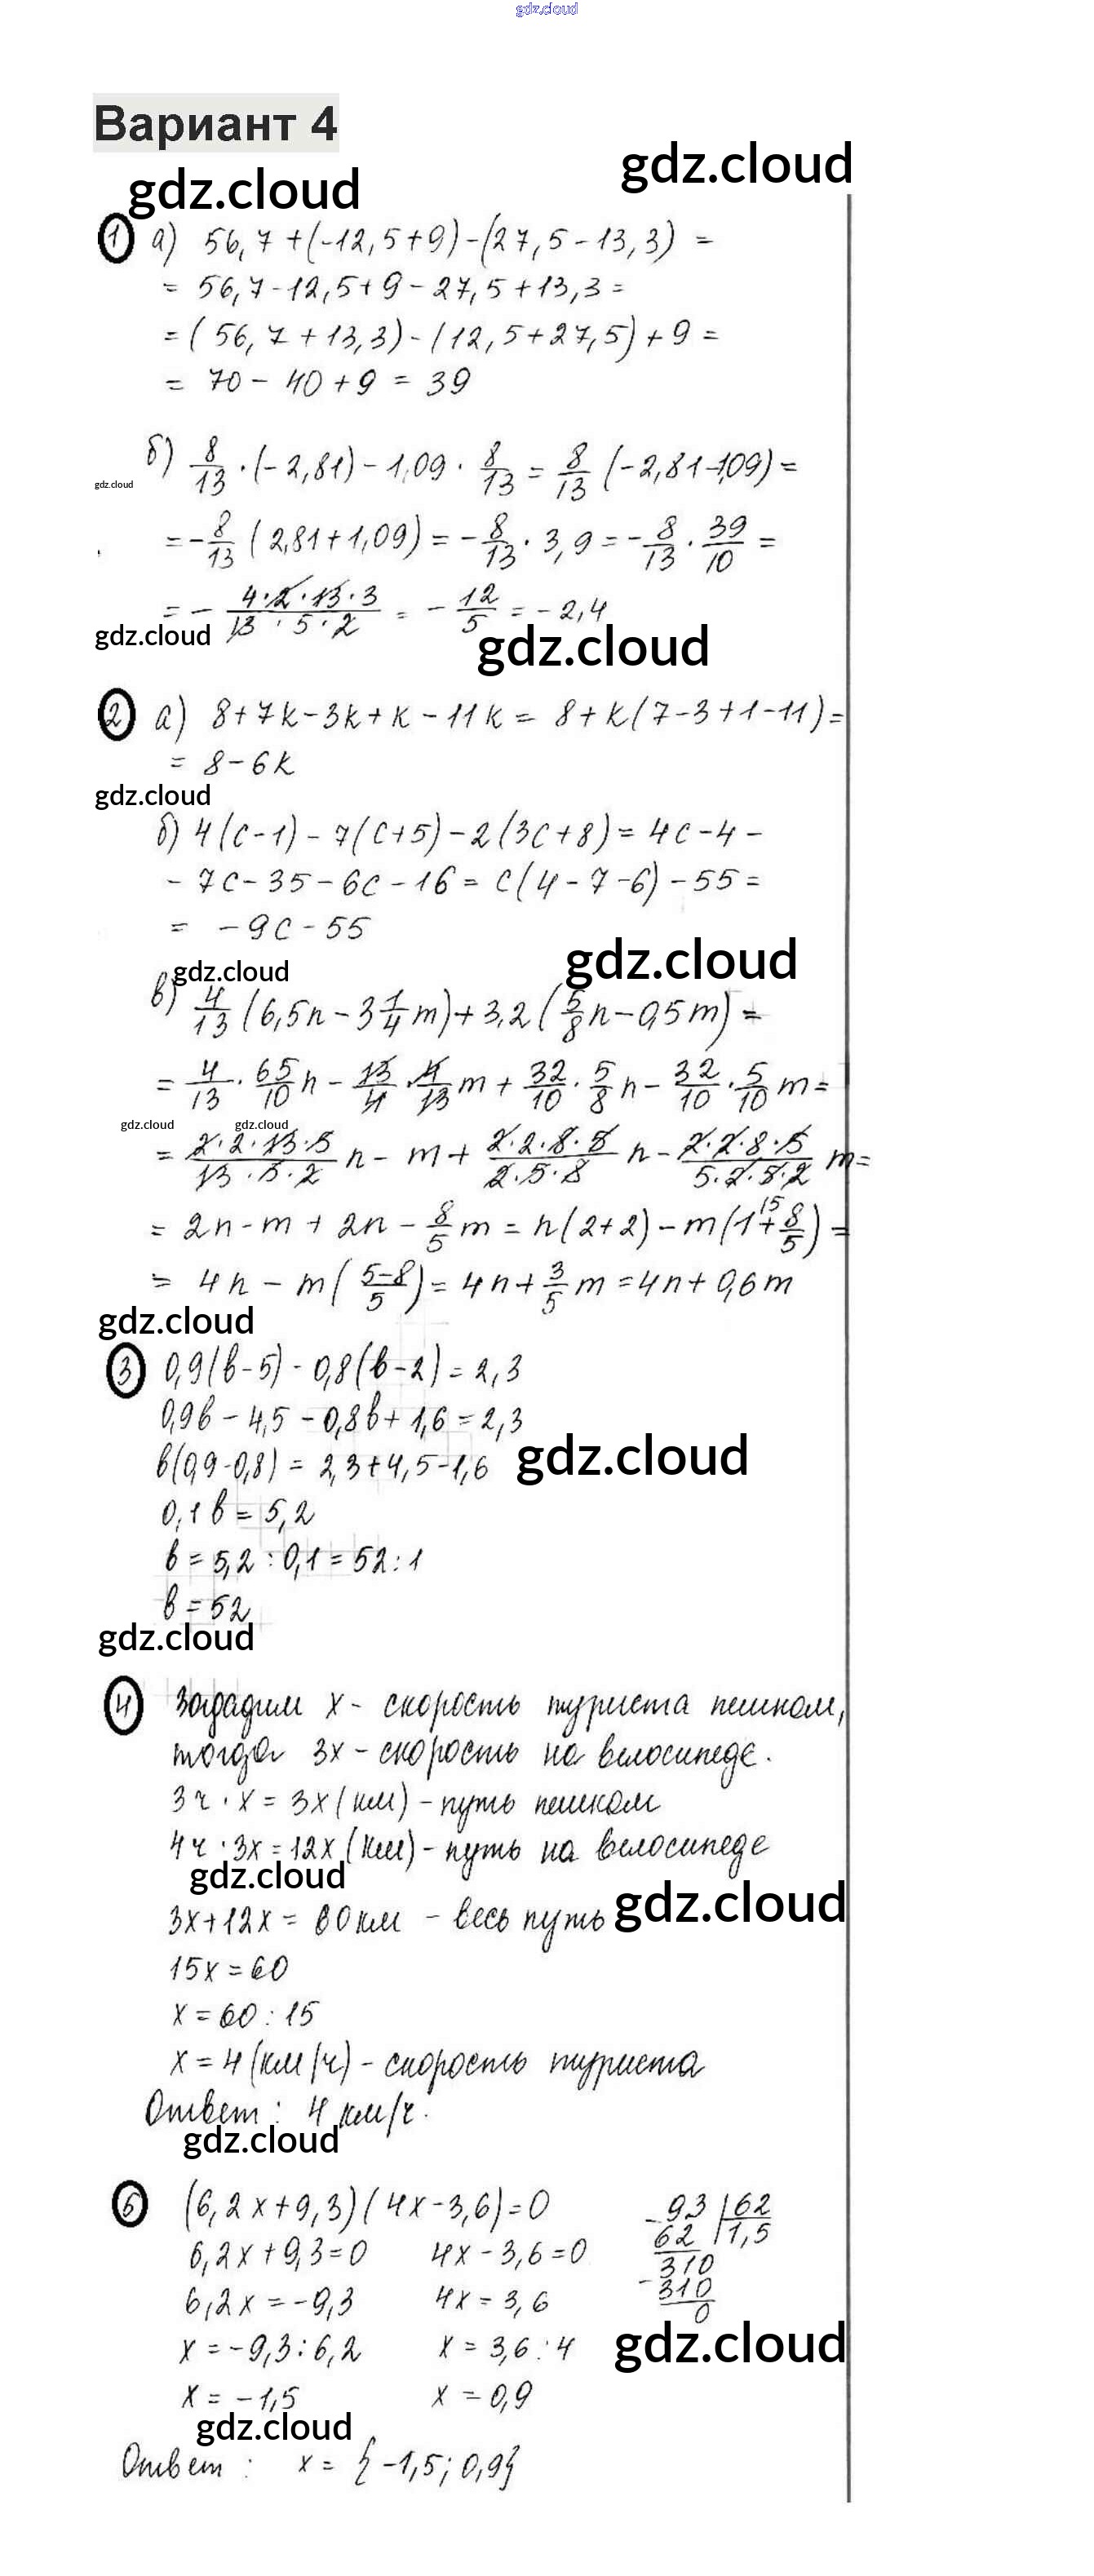 gdz.cloud
Вариант 4
gdz.cloud
gdz.cloud
1 а) 56,7+(-12,5+9)-(27,5-13,3) =
= 56,7-12,5+9-27,5+13,3=
=(56,7+13,3)-(12,5+27,5)+9=
= 70-40+9=39
б) 8/13 · (-2,81) - 1,09 · 8/13 = 8/13 (-2,81-1,09)=
gdz.cloud
= -8/13 (2,81+1,09) = -8/13 · 3,9 = -8/13 · 39/10 =
= - 4·2·13·3/13·5·2 = - 12/5 = -2,4
gdz.cloud
gdz.cloud
2 а) 8+7k-3k+k-11k= 8+k(7-3+1-11)=
= 8-6k
gdz.cloud
б) 4(c-1)-7(c+5)-2(3c+8)=4c-4-
-7c-35-6c-16=c(4-7-6)-55=
= -9c-55
gdz.cloud
gdz.cloud
в) 4/13 (6,5n-3 1/4 m)+3,2(5/8 n-0,5m)=
= 4/13 · 65/10 n - 13/4 · 4/13 m + 32/10 · 5/8 n - 32/10 · 5/10 m=
gdz.cloud
gdz.cloud
= 2·2·13·5/13·5·2 n - m + 2·2·8·5/2·5·8 n - 2·2·8·5/5·2·5·2 m=
= 2n-m+2n- 8/5 m = n(2+2)-m(1\5+8/5)=
= 4n - m(5-8/5)= 4n+ 3/5 m =4n+0,6m
gdz.cloud
3 0,9(b-5)-0,8(b-2)=2,3
0,9b-4,5-0,8b+1,6=2,3
gdz.cloud
b(0,9-0,8)= 2,3+4,5-1,6
0,1b=5,2
b=5,2:0,1=52:1
b=52
gdz.cloud
4 Зададим x- скорость туриста пешком,
тогда 3x-скорость на велосипеде.
3ч·x=3x(км)-путь пешком
4ч·3x=12x(км)-путь на велосипеде
gdz.cloud
gdz.cloud
3x+12x=60км - весь путь
15x=60
x=60:15
x=4(км/ч)-скорость туриста
Ответ: 4 км/ч.
gdz.cloud
5 (6,2x+9,3)(4x-3,6)=0
6,2x+9,3=0 4x-3,6=0
6,2x=-9,3 4x=3,6
x=-9,3:6,2 x=3,6:4
x=-1,5 x=0,9
-93 | 62
62 | 1,5
310
-310
0
gdz.cloud
gdz.cloud
Ответ: x= {-1,5; 0,9}